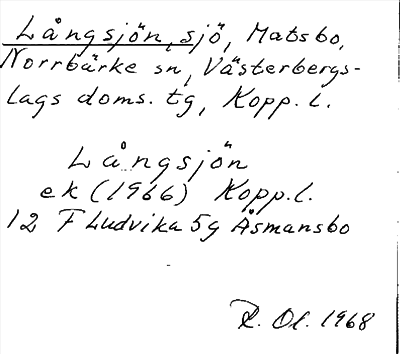 Långsjön, sjö, Matsbo,
Norrbärke sn, Västerbergs-
lags doms. tg, Kopp. l.
Långsjön
ek (1966) Kopp. l.
12 F Ludvika 5g Åsmansbo
R. Ol. 1968